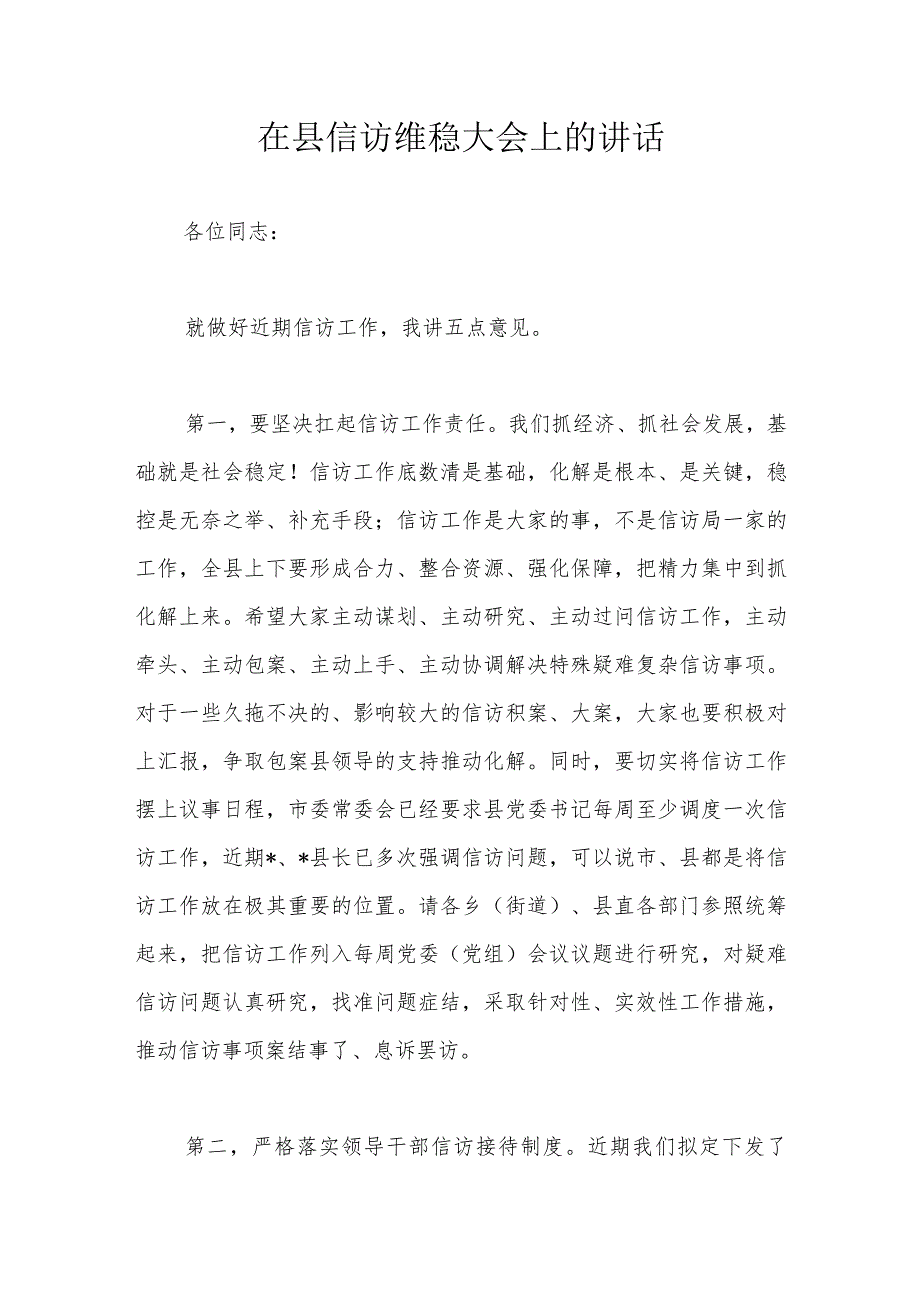 在县信访维稳大会上的讲话
各位同志：
就做好近期信访工作，我讲五点意见。
第一，要坚决扛起信访工作责任。我们抓经济、抓社会发展，基
础就是社会稳定！信访工作底数清是基础，化解是根本、是关键，稳
控是无奈之举、补充手段；信访工作是大家的事，不是信访局一家的
工作，全县上下要形成合力、整合资源、强化保障，把精力集中到抓
化解上来。希望大家主动谋划、主动研究、主动过问信访工作，主动
牵头、主动包案、主动上手、主动协调解决特殊疑难复杂信访事项。
对于一些久拖不决的、影响较大的信访积案、大案，大家也要积极对
上汇报，争取包案县领导的支持推动化解。同时，要切实将信访工作
摆上议事日程，市委常委会已经要求县党委书记每周至少调度一次信
访工作，近期*、*县长已多次强调信访问题，可以说市、县都是将信
访工作放在极其重要的位置。请各乡（街道）、县直各部门参照统筹
起来，把信访工作列入每周党委（党组）会议议题进行研究，对疑难
信访问题认真研究，找准问题症结，采取针对性、实效性工作措施，
推动信访事项案结事了、息诉罢访。
第二，严格落实领导干部信访接待制度。近期我们拟定下发了